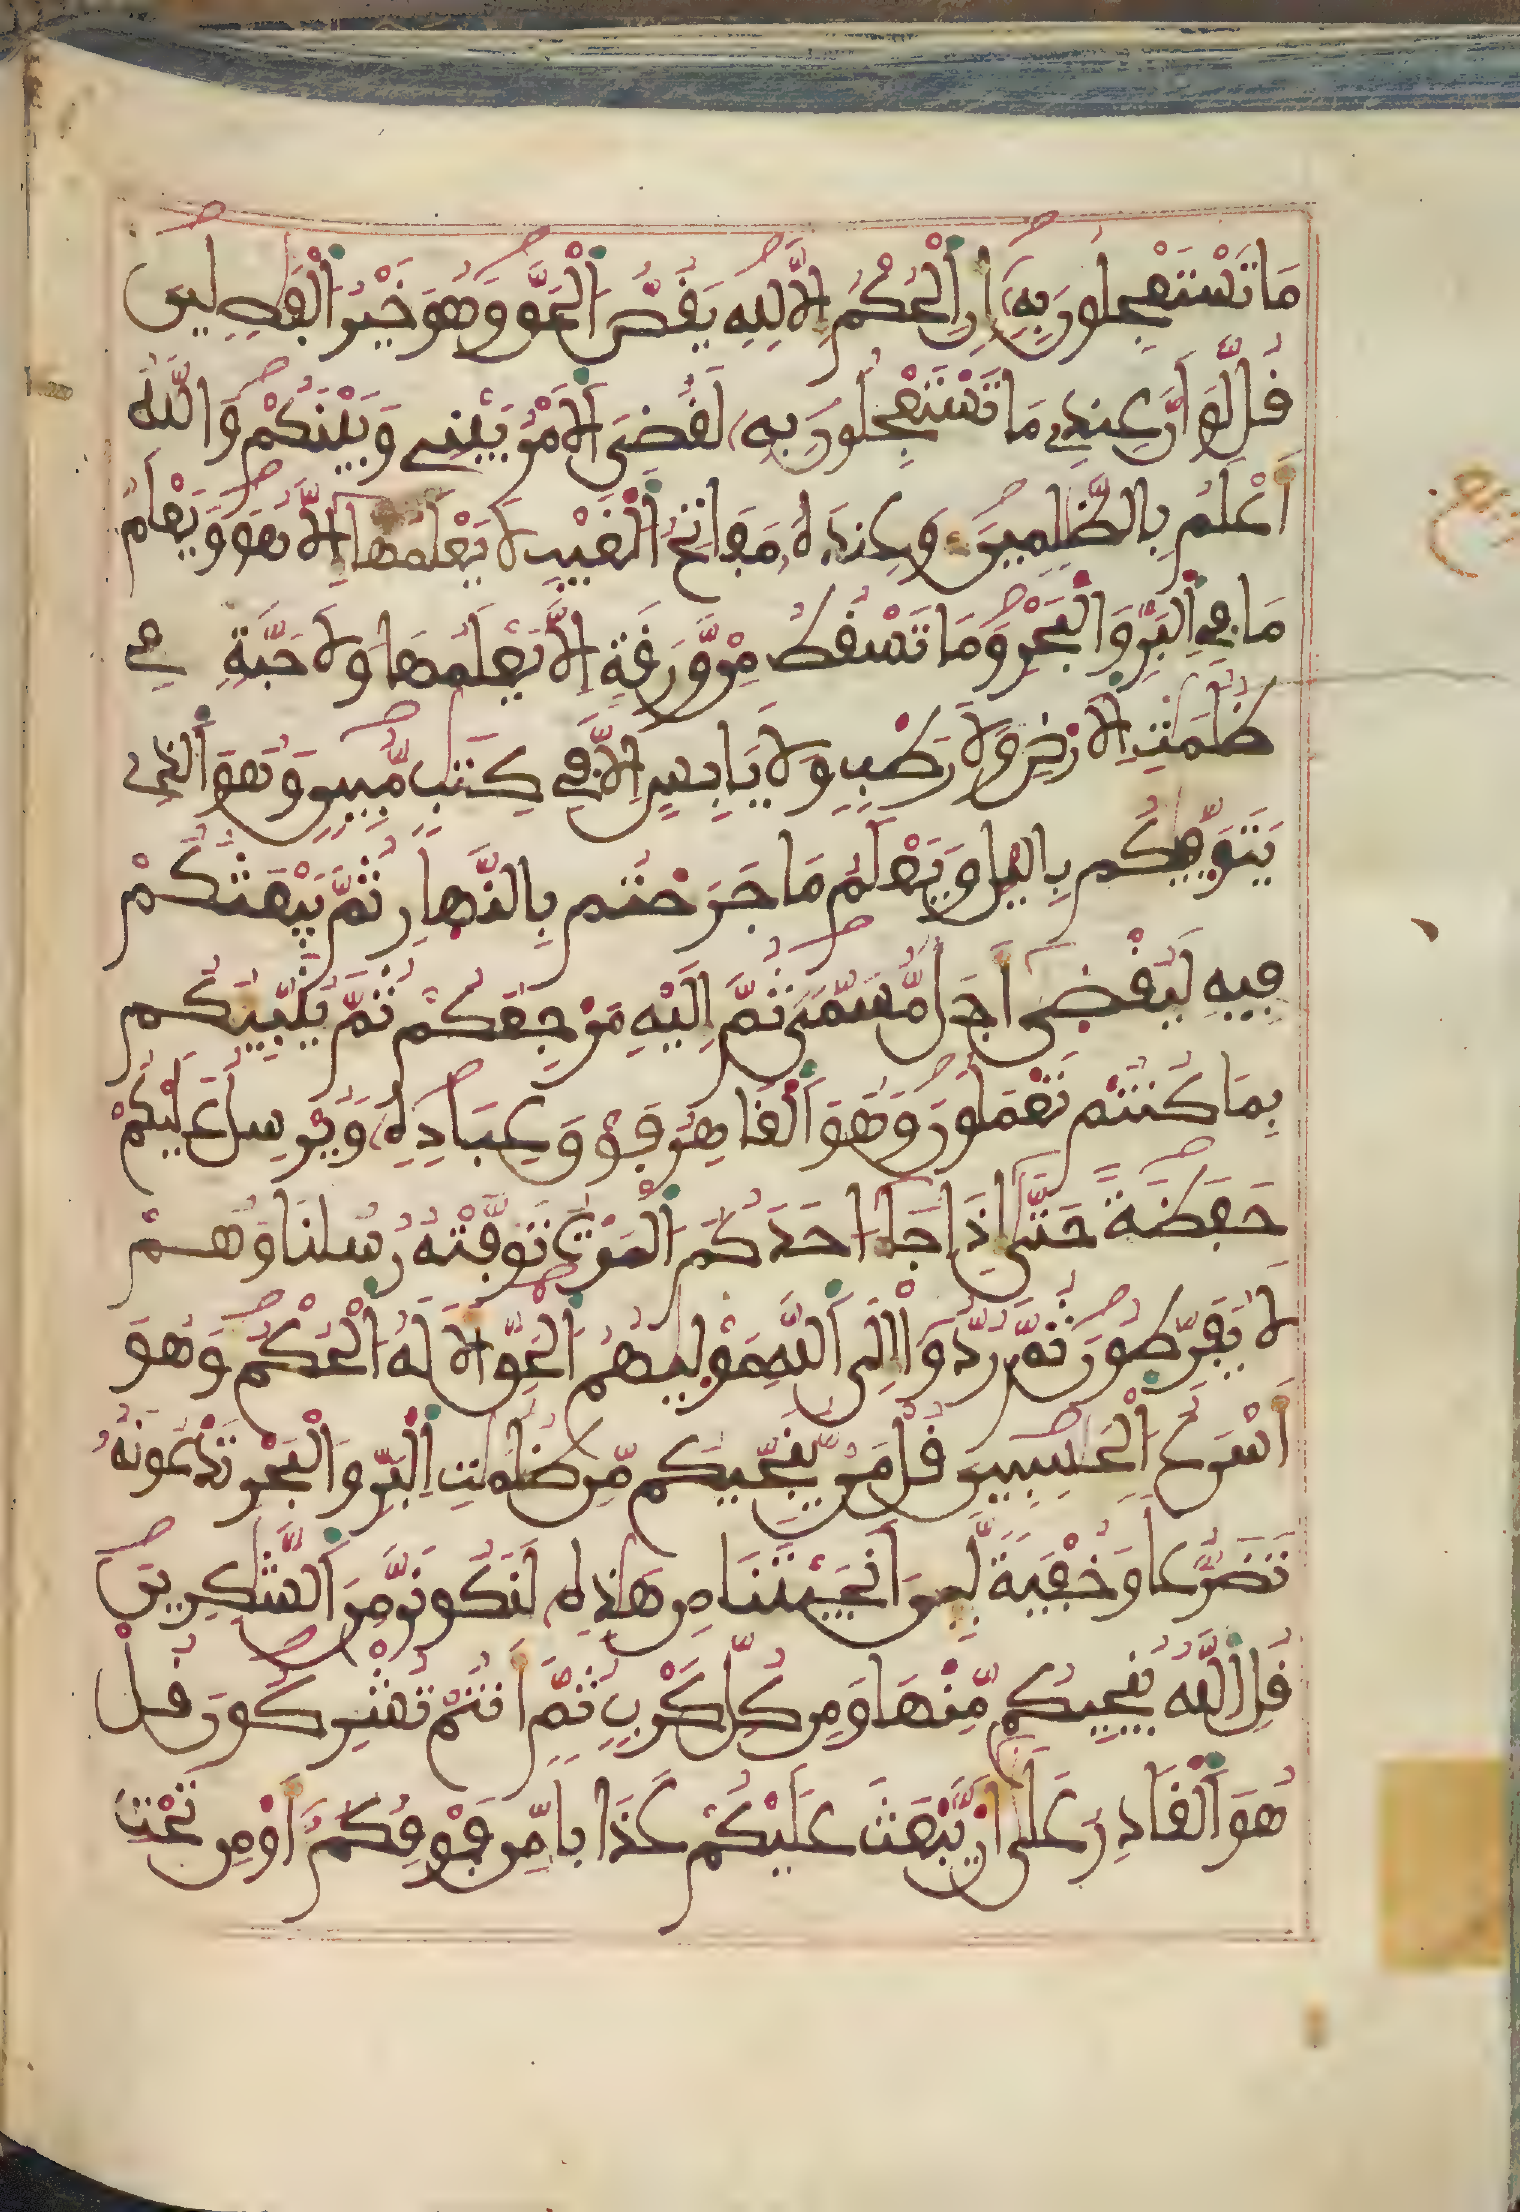 مَا تَسْتَعْجِلُونَ بِهِ إِنِ اِلْحُكْمُ إِلَّا لِلهِ يَقُصُّ اُلْحَقَّ وَهُوَ خَيْرُ اُلْفَٰصِلِينَ
قُل لَّوَ اَنَّ عِندِے مَا تَسْتَعْجِلُونَ بِهِ لَقُضِيَ اَلَامْرُ بَيْنِے وَبَيْنَكُمْ وَاللَّهُ
أَعْلَمُ بِالظَّٰلِمِينَ وَعِندَهُ مَفَاتِحُ اُلْغَيْبِ لَا يَعْلَمُهَا إِلَّا هُوَ وَيَعْلَمُ
مَا فِے اِلْبَرِّ وَالْبَحْرِ وَمَا تَسْقُطُ مِنْ وَّرَقَةٍ إِلَّا يَعْلَمُهَا وَلَا حَبَّةٍ فِے
ظُلُمَٰتِ اِلَارْضِ وَلَا رَطْبٍ وَلَا يَابِسٍ إِلَّا فِے كِتَٰبٍ مُّبِينٍ وَهُوَ اَلذِے
يَتَوَفَّيٰكُم بِاليْلِ وَيَعْلَمُ مَا جَرَحْتُم بِالنَّهارِ ثُمَّ يَبْعَثُكُمْ
فِيهِ لِيُقْضَىٰ أَجَلٌ مُّسَمّىً ثُمَّ إِلَيْهِ مَرْجِعُكُمْ ثُمَّ يُنَبِّئُكُم
بِمَا كُنتُمْ تَعْمَلُونَ وَهُوَ اَلْقَاهِرُ فَوْقَ عِبَادِهِ وَيُرْسِلُ عَلَيْكُمْ
حَفَظَةً حَتَّىٰ إِذَا جَاءَ احَدَكُمُ اُلْمَوْتُ تَوَفَّتْهُ رُسُلُنَا وَهُمْ
لَا يُفَرِّطُونَ ثُمَّ رُدُّوا إِلَى اَللَّهِ مَوْلَيٰهُمُ اُلْحَقِّ أَلَا لَهُ اُلْحُكْمُ وَهُوَ
أَسْرَعُ اُلْحَٰسِبِينَ قُلْ مَنْ يُّنَجِّيكُم مِّن ظُلُمَٰتِ اِلْبَرِّ وَالْبَحْرِ تَدْعُونَهُ
تَضَرُّعا وَخُفْيَةً لَّئِنَ اَنجَيْتَنَا مِنْ هَٰذِهِ لَنَكُونَنَّ مِنَ اَلشَّٰكِرِينَ
قُلِ اِللَّهُ يُنجِيكُم مِّنْهَا وَمِن كُلِّ كَرْبٍ ثُمَّ أَنتُمْ تُشْرِكُونَ قُلْ
هُوَ اَلْقَادِرُ عَلَىٰ أَنْ يَّبْعَثَ عَلَيْكُمْ عَذَابا مِّن فَوْقِكُمُ أَوْ مِن تَحْتِ